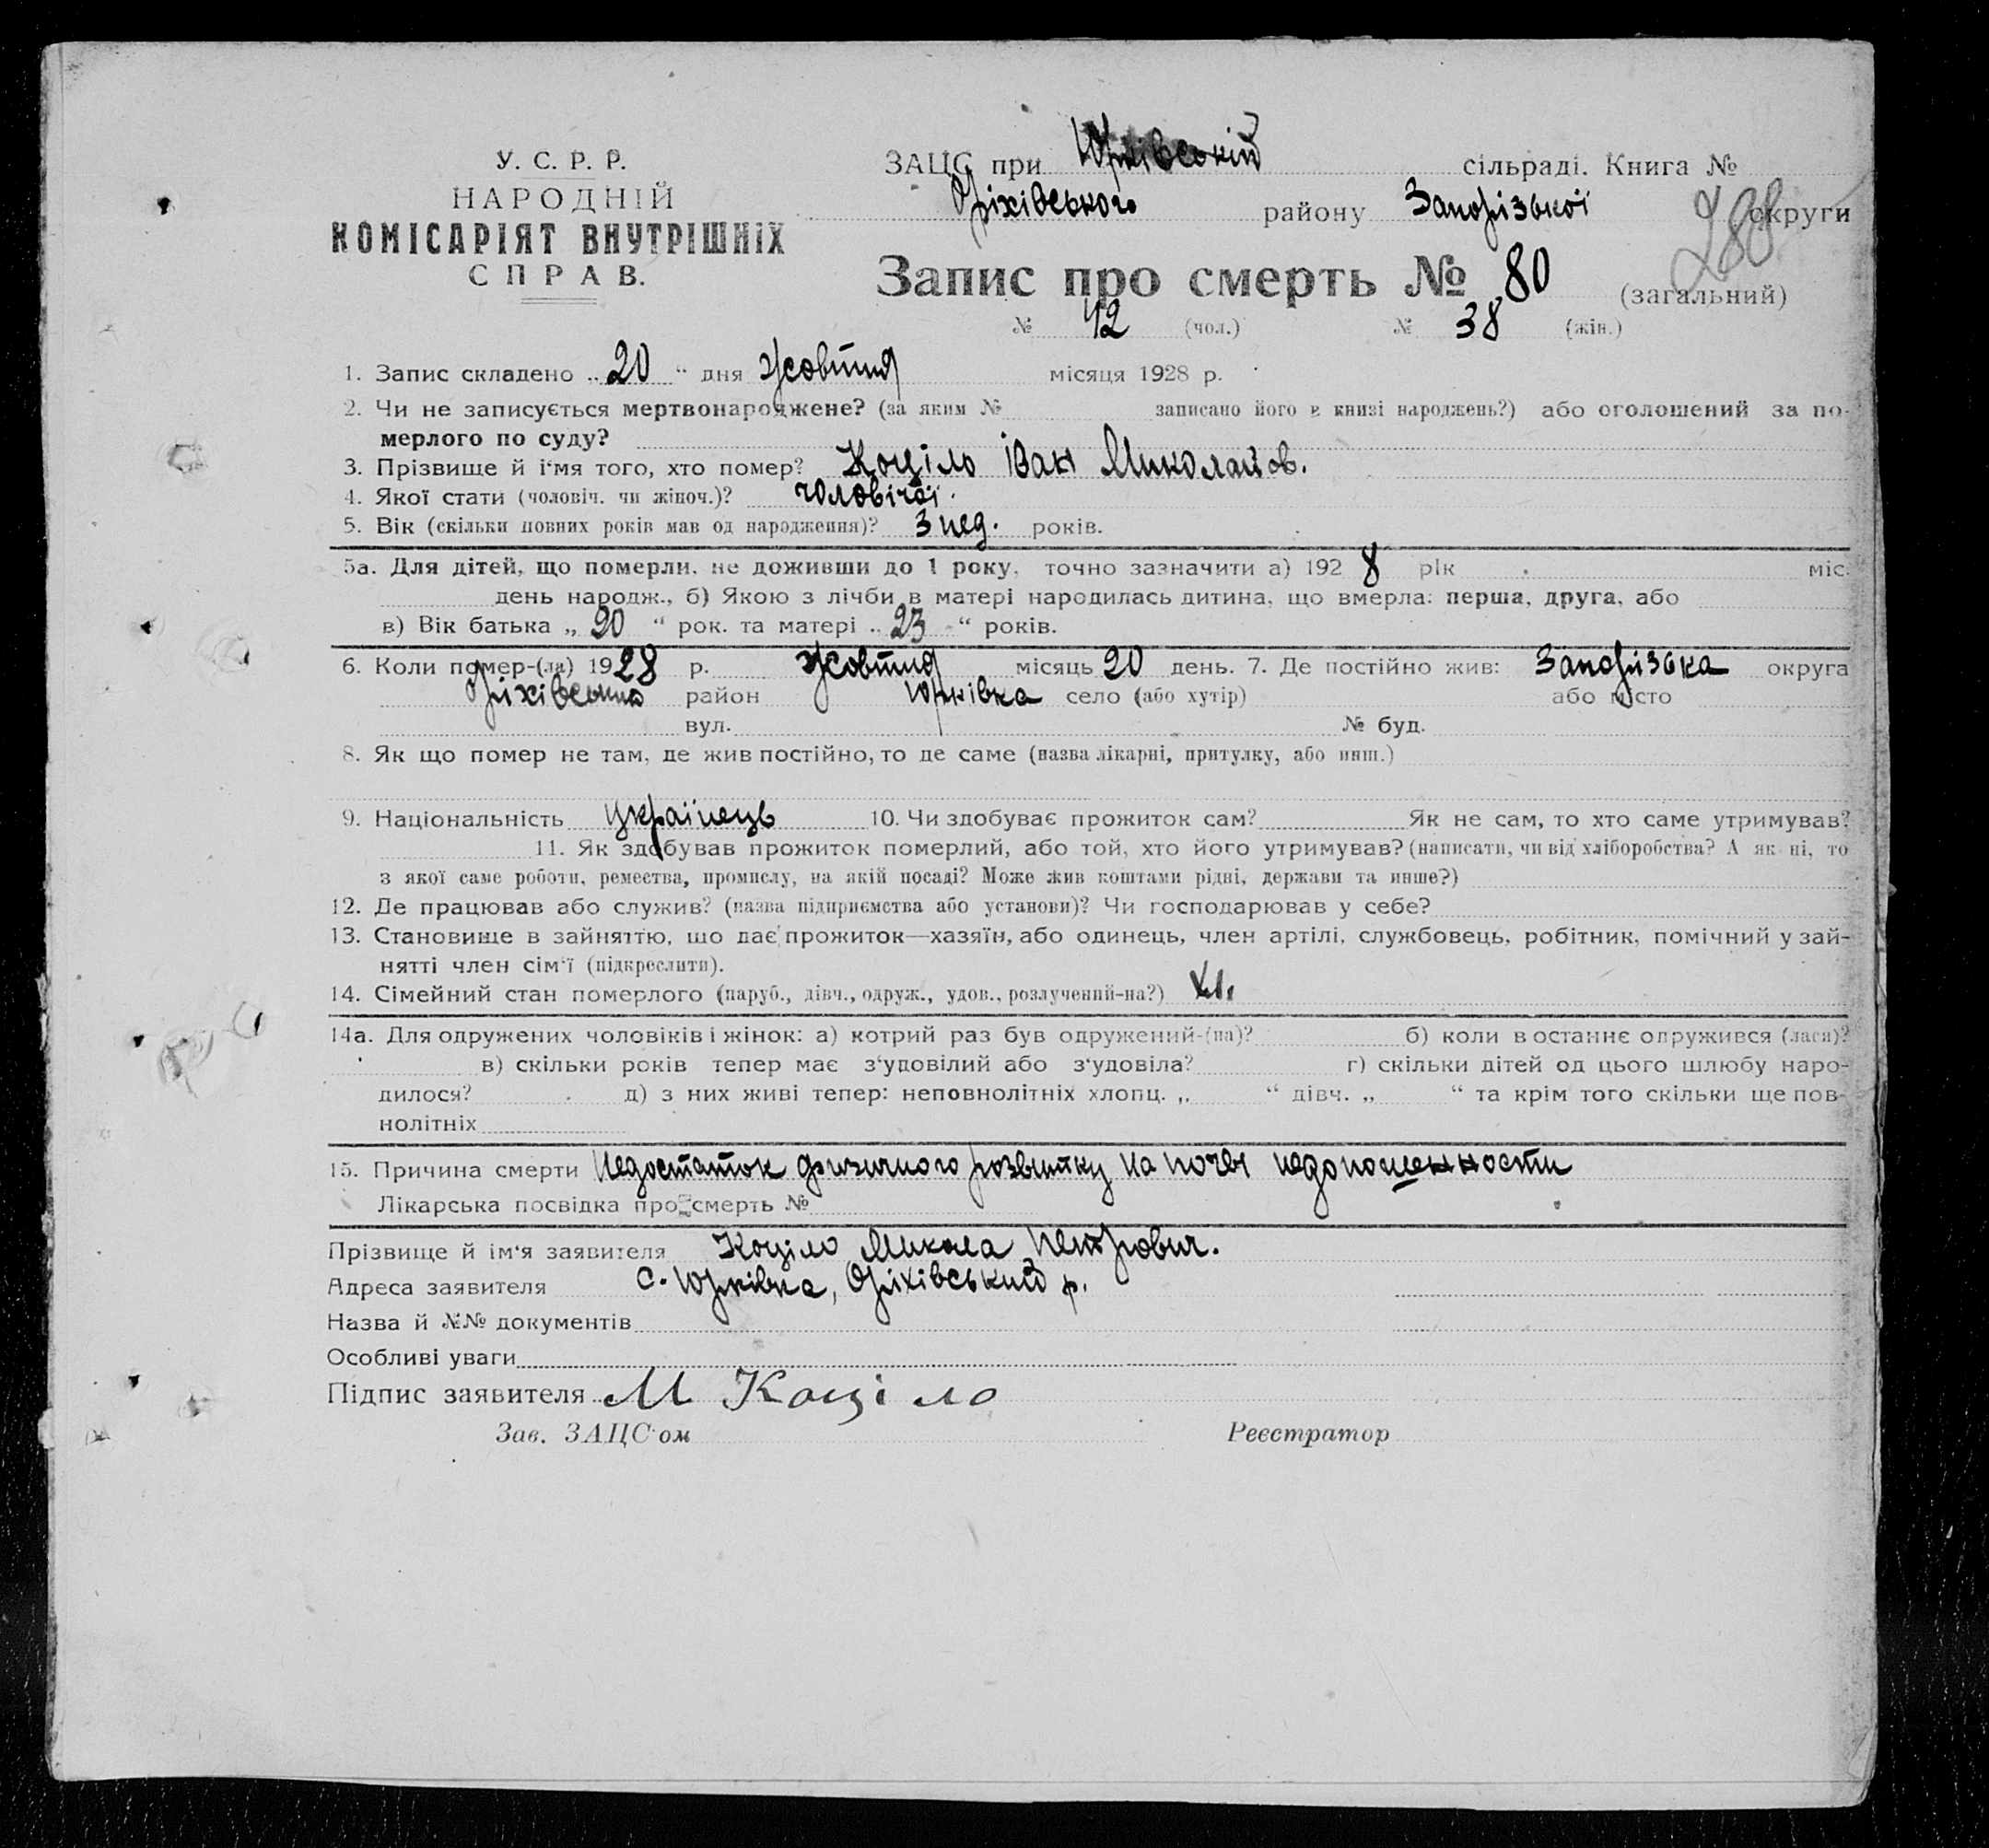 У. С. Р. Р.
НАРОДНІЙ
КОМІСАРІЯТ ВНУТРІШНІХ
СПРАВ.
ЗАЦС при Юрківській сільраді. Книга №
Оріхівського району Запорізької округи
288
Запис про смерть № 80 (загальний)
№ 42 (чол.) № 38 (жін.)
1. Запис складено „20“ дня жовтня місяця 1928 р.
2. Чи не записується мертвонароджене? (за яким № записано його в книзі народжень?) або оголошений за по-
мерлого по суду?
3. Прізвище й ім‘я того, хто помер? Коціло Іван Миколайов.
4. Якої стати (чоловіч. чи жіноч.)? чоловічої.
5. Вік (скільки повних років мав од народження)? 3 нед. років.
5а. Для дітей, що померли, не доживши до 1 року, точно зазначити а) 1928 рік міс.
день народж., б) Якою з лічби в матері народилась дитина, що вмерла: перша, друга, або
в) Вік батька „20“ рок. та матері „23“ років.
6. Коли помер-(ла) 1928 р. жовтня місяць 20 день. 7. Де постійно жив: Запорізька округа
Оріхівський район Юрківка село (або хутір) або місто
вул. № буд.
8. Як що помер не там, де жив постійно, то де саме (назва лікарні, притулку, або инш.)
9. Національність українець 10. Чи здобуває прожиток сам? Як не сам, то хто саме утримував?
11. Як здобував прожиток померлий, або той, хто його утримував? (написати, чи від хліборобства? А як ні, то
з якої саме роботи, ремества, промислу, на якій посаді? Може жив коштами рідні, держави та инше?)
12. Де працював або служив? (назва підприємства або установи)? Чи господарював у себе?
13. Становище в зайняттю, що дає прожиток—хазяїн, або одинець, член артілі, службовець, робітник, помічний у зай-
нятті член сім‘ї (підкреслити).
14. Сімейний стан померлого (паруб., дівч., одруж., удов., розлучений-на?)
14а. Для одружених чоловіків і жінок: а) котрий раз був одружений-(на)? б) коли в останнє одружився (лася)?
в) скільки років тепер має з‘удовілий або з‘удовіла? г) скільки дітей од цього шлюбу наро-
дилося? д) з них живі тепер: неповнолітніх хлопц. „ “ дівч. „ “ та крім того скільки ще пов-
нолітніх
15. Причина смерти Недостаток физичного розвитку на почві недоношенности
Лікарська посвідка про смерть №
Прізвище й ім‘я заявителя Коціло Микола Петрович.
Адреса заявителя с. Юрківка, Оріхівський р.
Назва й №№ документів
Особливі уваги
Підпис заявителя М Коціло
Зав. ЗАЦС‘ом Реєстратор